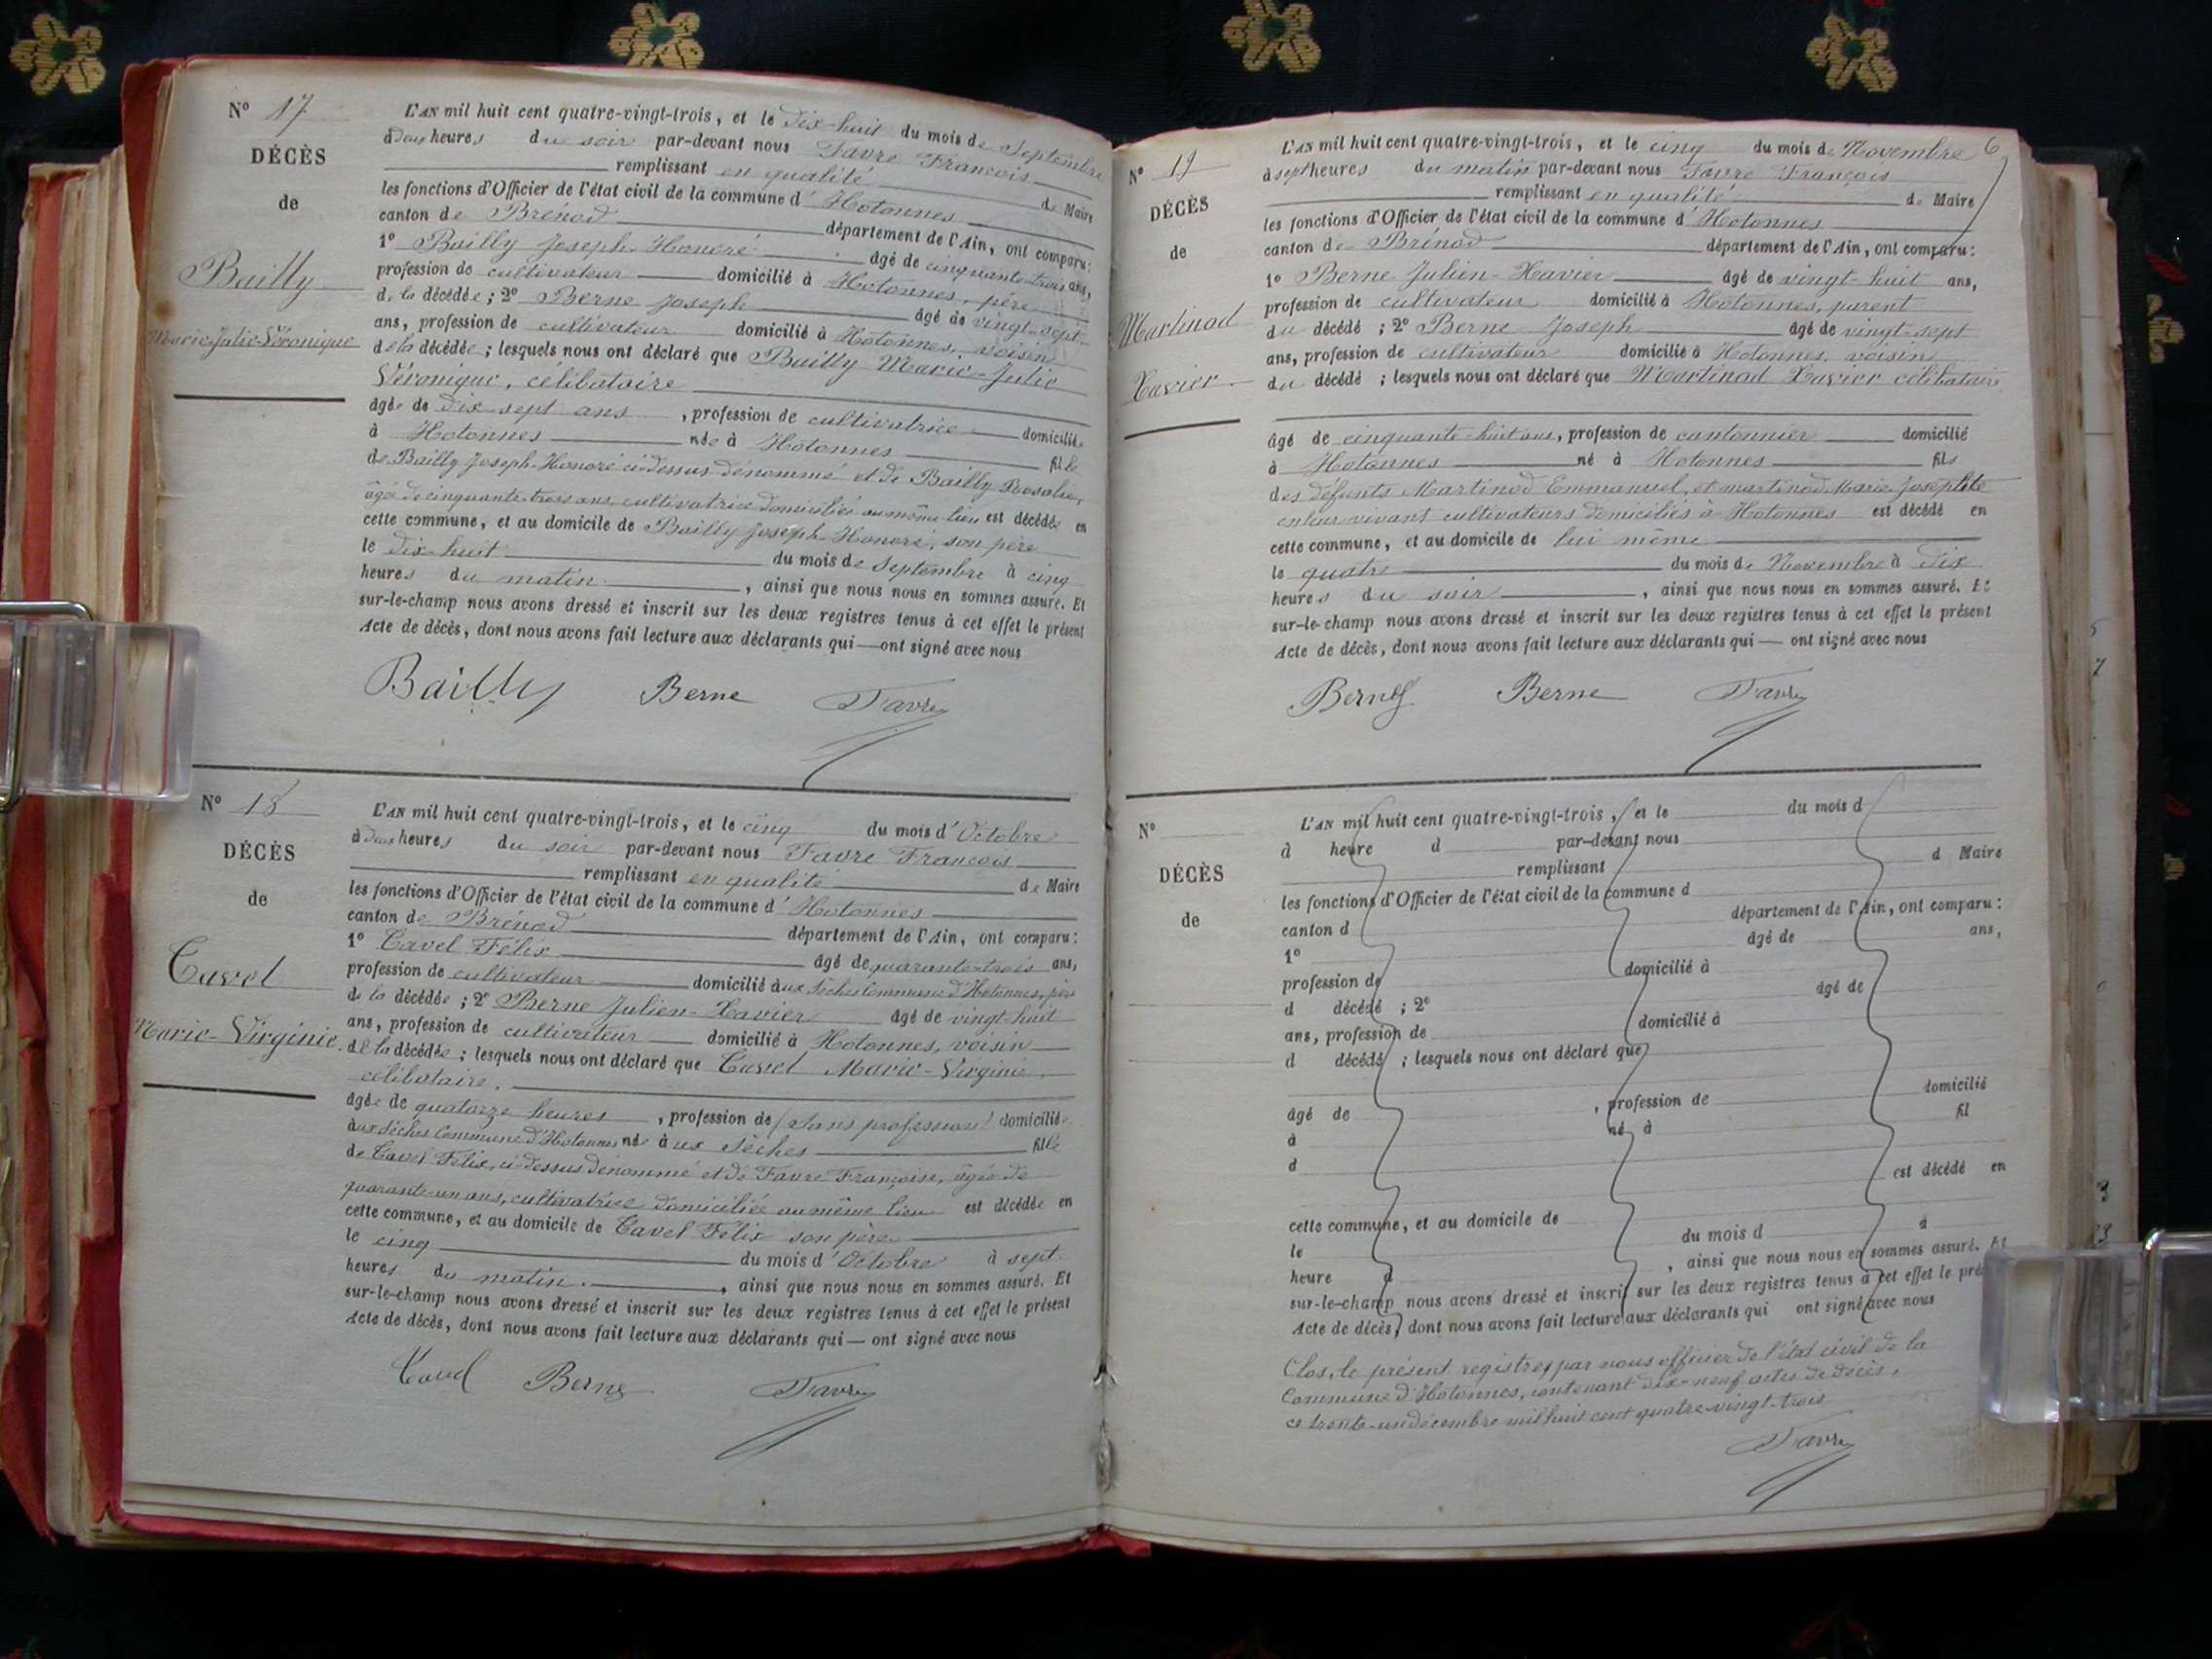 N° 17
DÉCÈS
de
Bailly
Marie-Julie-Véronique
L'AN mil huit cent quatre-vingt-trois, et le dix-huit du mois de Septembre
à deux heures du soir par-devant nous Favre François
remplissant en qualité de Maire
les fonctions d'Officier de l'état civil de la commune d'Hotonnes
canton de Brénod département de l'Ain, ont comparu :
1° Bailly Joseph-Honoré âgé de cinquante-trois ans,
profession de cultivateur domicilié à Hotonnes, père
de la décédée ; 2° Berne Joseph âgé de vingt-sept
ans, profession de cultivateur domicilié à Hotonnes, voisin
de la décédée ; lesquels nous ont déclaré que Bailly Marie-Julie
Véronique, célibataire
âgée de dix-sept ans, profession de cultivatrice domiciliée
à Hotonnes née à Hotonnes fille
de Bailly Joseph-Honoré ci-dessus dénommé et de Bailly Rosalie,
âgée de cinquante-trois ans, cultivatrice domiciliée au même lieu est décédée en
cette commune, et au domicile de Bailly Joseph-Honoré, son père
le dix-huit du mois de Septembre à cinq
heures du matin, ainsi que nous nous en sommes assuré. Et
sur-le-champ nous avons dressé et inscrit sur les deux registres tenus à cet effet le présent
Acte de décès, dont nous avons fait lecture aux déclarants qui — ont signé avec nous
Bailly Berne Favre
N° 18
DÉCÈS
de
Cavel
Marie-Virginie.
L'AN mil huit cent quatre-vingt-trois, et le cinq du mois d'Octobre
à deux heures du soir par-devant nous Favre François
remplissant en qualité de Maire
les fonctions d'Officier de l'état civil de la commune d'Hotonnes
canton de Brénod département de l'Ain, ont comparu :
1° Cavel Félix âgé de quarante-trois ans,
profession de cultivateur domicilié aux Sèches Commune d'Hotonnes, père
de la décédée ; 2° Berne Julien-Xavier âgé de vingt-huit
ans, profession de cultivateur domicilié à Hotonnes, voisin
de la décédée ; lesquels nous ont déclaré que Cavel Marie-Virginie
célibataire.
âgée de quatorze heures, profession de (sans profession) domiciliée
aux Sèches Commune d'Hotonnes née aux Sèches fille
de Cavel Félix, ci-dessus dénommé et de Favre Françoise, âgée de
quarante-un ans, cultivatrice domiciliée au même lieu est décédée en
cette commune, et au domicile de Cavel Félix son père
le cinq du mois d'Octobre à sept
heures du matin., ainsi que nous nous en sommes assuré. Et
sur-le-champ nous avons dressé et inscrit sur les deux registres tenus à cet effet le présent
Acte de décès, dont nous avons fait lecture aux déclarants qui — ont signé avec nous
Cavel Berne Favre
6
N° 19
DÉCÈS
de
Martinod
Xavier
L'AN mil huit cent quatre-vingt-trois, et le cinq du mois de Novembre
à sept heures du matin par-devant nous Favre François
remplissant en qualité de Maire
les fonctions d'Officier de l'état civil de la commune d'Hotonnes
canton de Brénod département de l'Ain, ont comparu :
1° Berne Julien-Xavier âgé de vingt-huit ans,
profession de cultivateur domicilié à Hotonnes, parent
du décédé ; 2° Berne Joseph âgé de vingt-sept
ans, profession de cultivateur domicilié à Hotonnes, voisin
du décédé ; lesquels nous ont déclaré que Martinod Xavier célibataire
âgé de cinquante-huit ans, profession de cantonnier domicilié
à Hotonnes né à Hotonnes fils
des défunts Martinod Emmanuel, et martinod Marie Josephte
en leur vivant cultivateurs domiciliés à Hotonnes est décédé en
cette commune, et au domicile de lui même
le quatre du mois de Novembre à dix
heures du soir, ainsi que nous nous en sommes assuré. Et
sur-le-champ nous avons dressé et inscrit sur les deux registres tenus à cet effet le présent
Acte de décès, dont nous avons fait lecture aux déclarants qui — ont signé avec nous
Berne Berne Favre
N°
DÉCÈS
de
L'AN mil huit cent quatre-vingt-trois, et le du mois d
à heure d par-devant nous
remplissant d Maire
les fonctions d'Officier de l'état civil de la commune d
canton d département de l'Ain, ont comparu :
1° âgé de ans,
profession de domicilié à
d décédé ; 2° âgé de
ans, profession de domicilié à
d décédé ; lesquels nous ont déclaré que
âgé de , profession de domicilié
à né à fil
d est décédé en
cette commune, et au domicile de
le du mois d à
heure d , ainsi que nous nous en sommes assuré. Et
sur-le-champ nous avons dressé et inscrit sur les deux registres tenus à cet effet le pré
Acte de décès, dont nous avons fait lecture aux déclarants qui ont signé avec nous
Clos, le présent registre, par nous officier de l'état civil de la
Commune d'Hotonnes, contenant dix-neuf actes de décès,
ce trente-un décembre mil huit cent quatre-vingt-trois
Favre